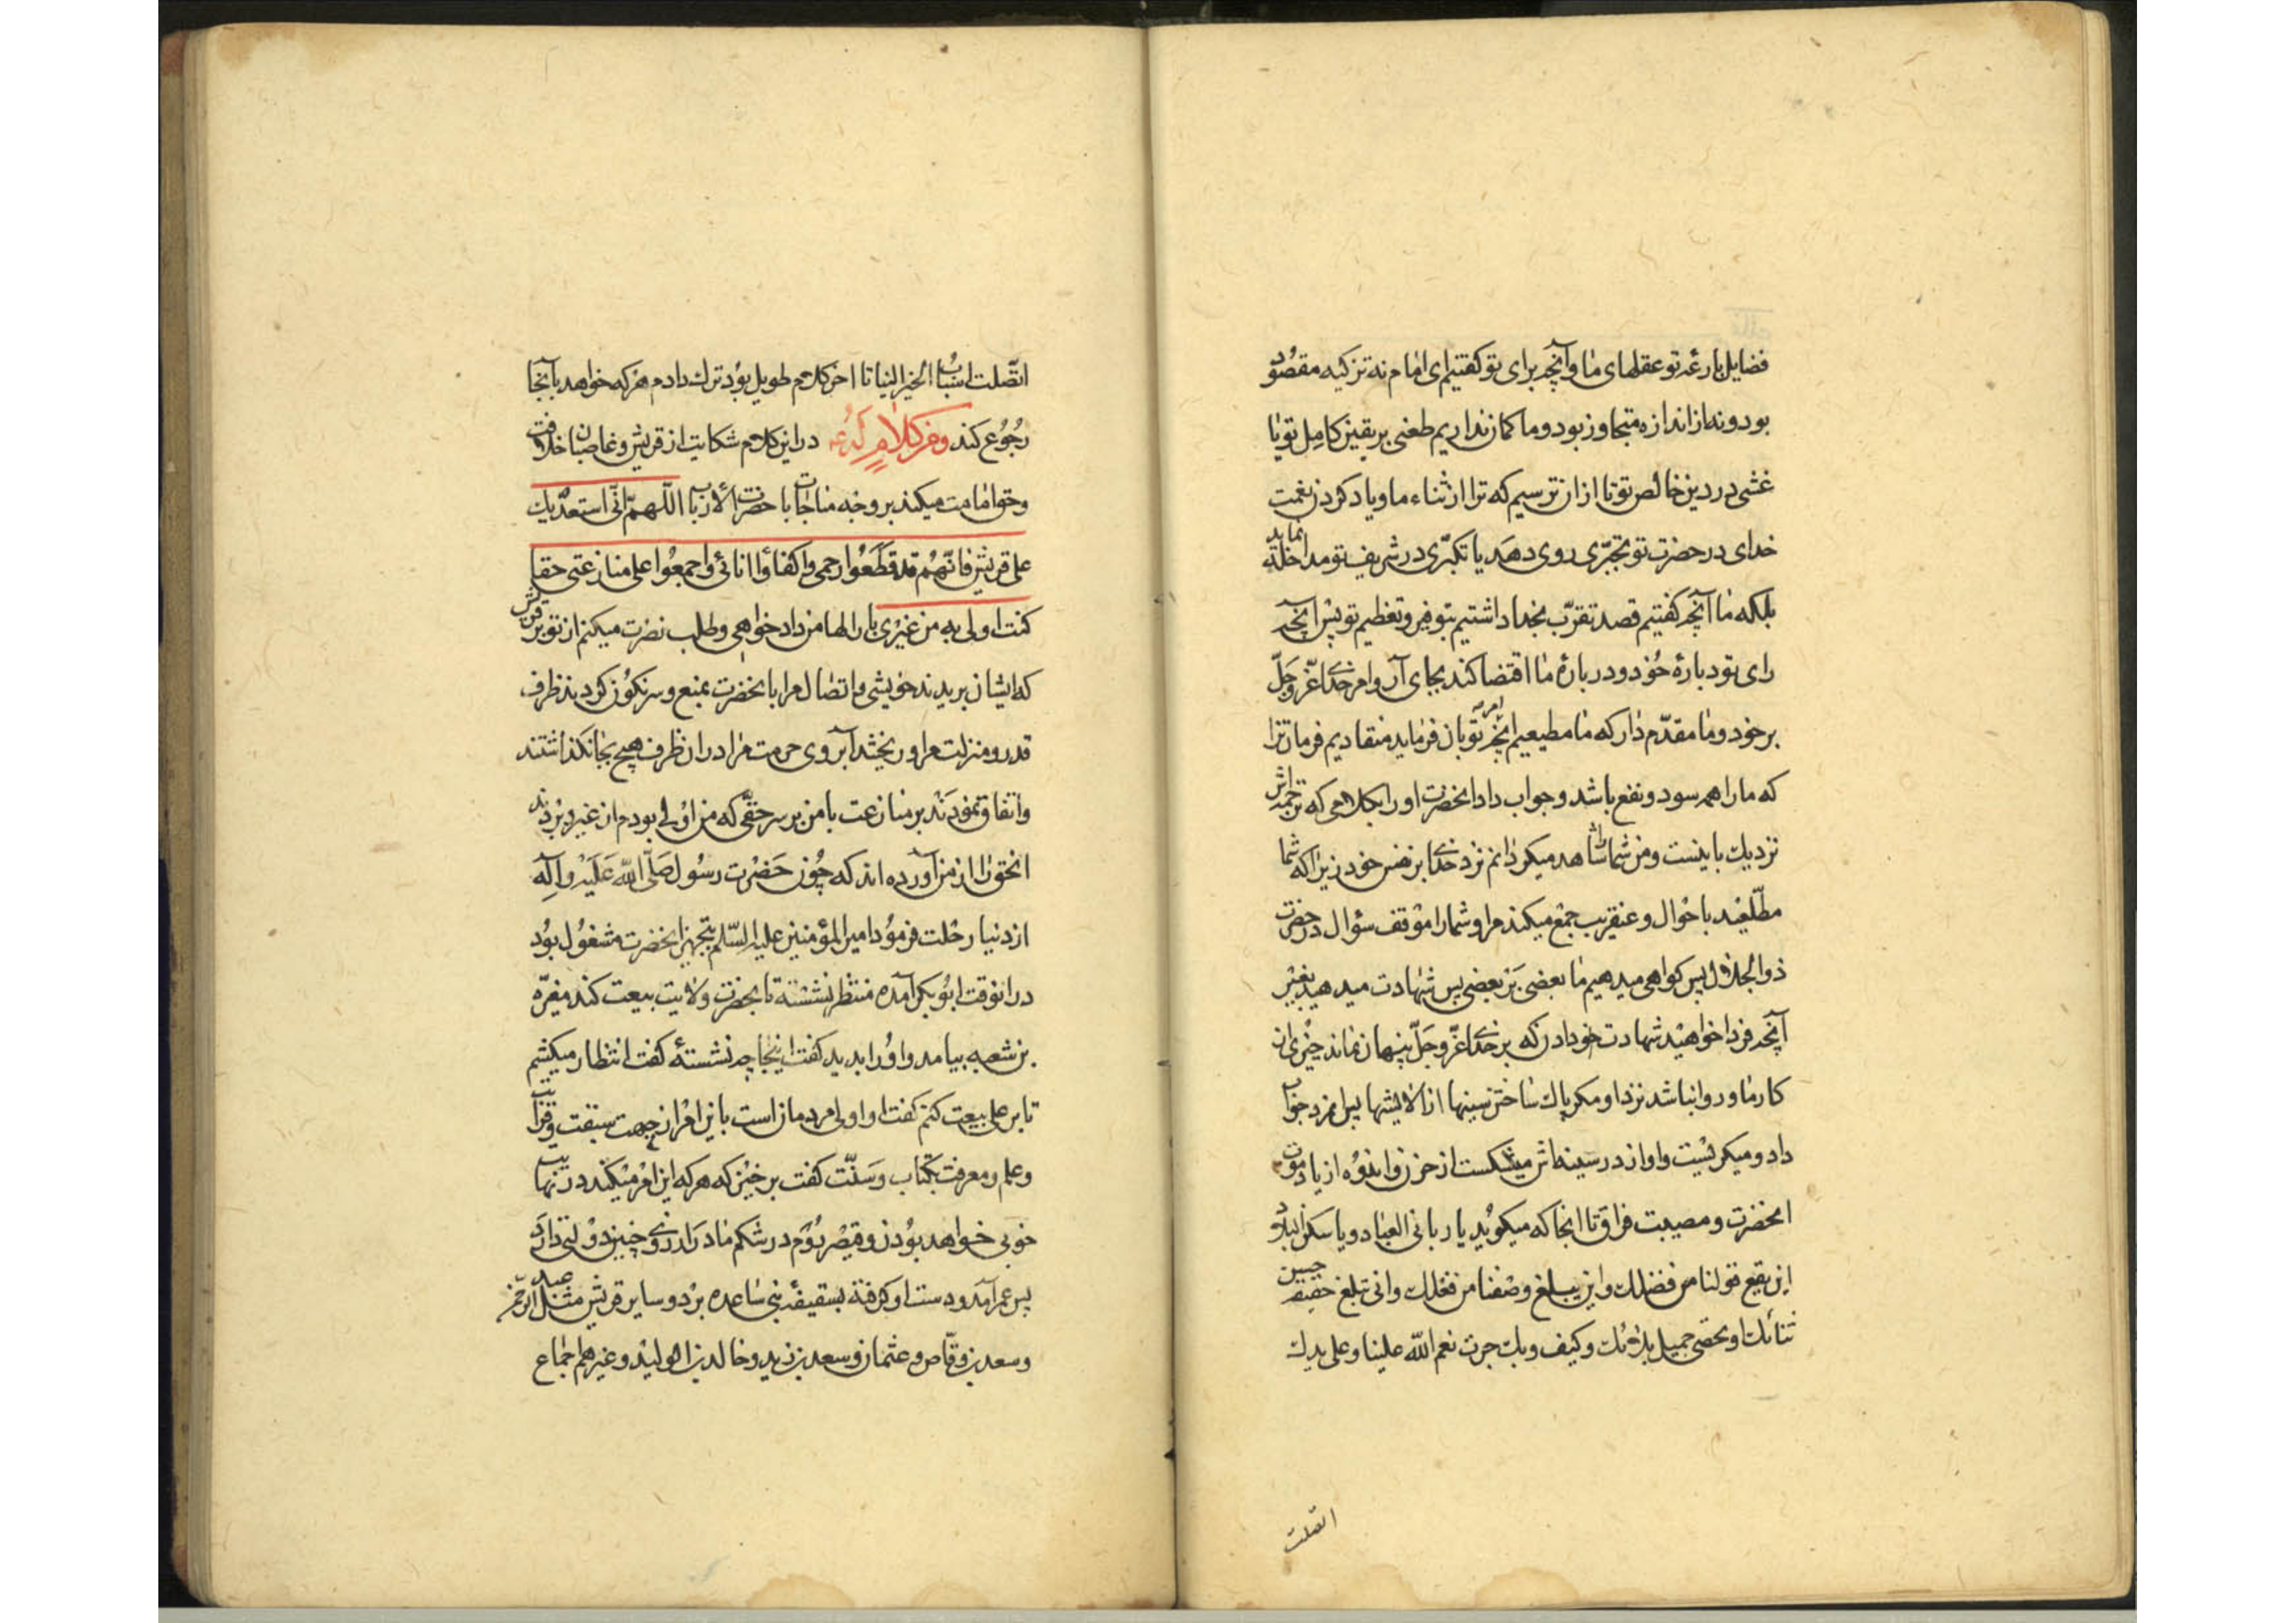 فضایل بارعه تو عقلهای ما و آنچه برای تو گفتیم ای امام نه تزکیه مقصود
بود و نه از اندازه متجاوز بود و ما گمان نداریم طعنی بر یقین کامل تو یا
غشی در دین خالص تو تا ازان ترسیم که ترا از ثناء ما و یاد کردن نعمت
خدای در حضرت تو تجبّری روی دهد یا تکبّری در شریف تو مداخله نماید
بلکه ما آنچه گفتیم قصد تقرّب بخدا داشتیم بتوقیر و تعظیم تو پس آنچه
رای تو درباره خود و درباره ما اقتضا کند بجای آر و امر خدا عزّ و جلّ
بر خود و ما مقدّم دار که ما مطیعیم آنچه امر تو بان فرماید منقادیم فرمان ترا
که ما را همه سود و نفع باشد و جواب داد انحضرت او را بکلامی که ترجمه اش
نزدیک باینست و من شما را شاهد میگردانم نزد خدا بر نفس خود زیرا که شما
مطّلعید باحوال و عنقریب جمع میکند مرا و شما را موقف سؤال در حضرت
ذو الجلال پس گواهی میدهیم ما بعضی بر بعضی پس شهادت میدهید بغیر
آنچه فردا خواهید شهادت خود داد که بر خدا عزّ و جلّ پنهان نماند چیزی از
کار ما و روا نباشد نزد او مگر پاک ساختن سینها از الایشها پس امرد جواب
داد و میگریست و اواز در سینه اش میشکست از حزن و اندوه از یاد موت
انحضرت و مصیبت فراق تا انجا که میگوید یا ربانی العباد و یا سکن البلاد
این یقع قولنا من فضلک و این یبلغ وصفنا من فعلک و انی نبلغ حقیقة حسن
ثنائک او نحصی جمیل بلائک و کیف و بک جرت نعم الله علینا و علی یدک
اتصلت
اتّصلت اسباب الخیر الینا تا اخر کلام طویل بود ترک دادم هر که خواهد بآنجا
رجوع کند و من کلام له ع در این کلام شکایت از قریش و غاصبان خلافت
و حق امامت میکند بر وجه مناجات با حضرت رب الارباب اللّهمّ انّی استعدیک
علی قریش فانّهم قد قطعوا رحمی و اکفاؤا انائی و اجمعوا علی منازعتی حقا
کنت اولی به من غیری بار الها من داد خواهی و طلب نصرت میکنم از تو بر قریش
که ایشان بریدند خویشی و اتصال مرا بانحضرت بمنع و سرنگون کردند ظرف
قدر و منزلت مرا و ریختند آبروی حرمت مرا در ان ظرف هیچ بجا نگذاشتند
و اتفاق نمودند بر منازعت با من بر سر حقّی که من اولی بودم از غیر و بردند
انحق را از من آورده اند که چون حضرت رسول صلّی الله علیه و آله
از دنیا رحلت فرمود امیر المؤمنین علیه السّلم بتجهیز انحضرت مشغول بود
در انوقت ابو بکر آمده منتظر نشسته تا بحضرت ولایت بیعت کند مغیرّه
بن شعبه بیامد و او را بدید گفت اینجا چه نشستهٔ گفت انتظار میکشم
تا بر علی بیعت کنم گفت او اولی مردمان است باین امر از جهت سبقت و قرابت
و علم و معرفت بکتاب و سنّت گفت بر خیز که هر که این امر میکند
خوبی خواهد بود ن و قیصر روم در شکم مادر چنین دولتی دارد
پس عمر آمد و دست او گرفته بسقیفهٔ بنی ساعده برد و سایر قریش مثل عبد الرحمن
و سعد بن وقّاص و عثمان و سعد بن زید و خالد بن الولید و غیرهم اجماع